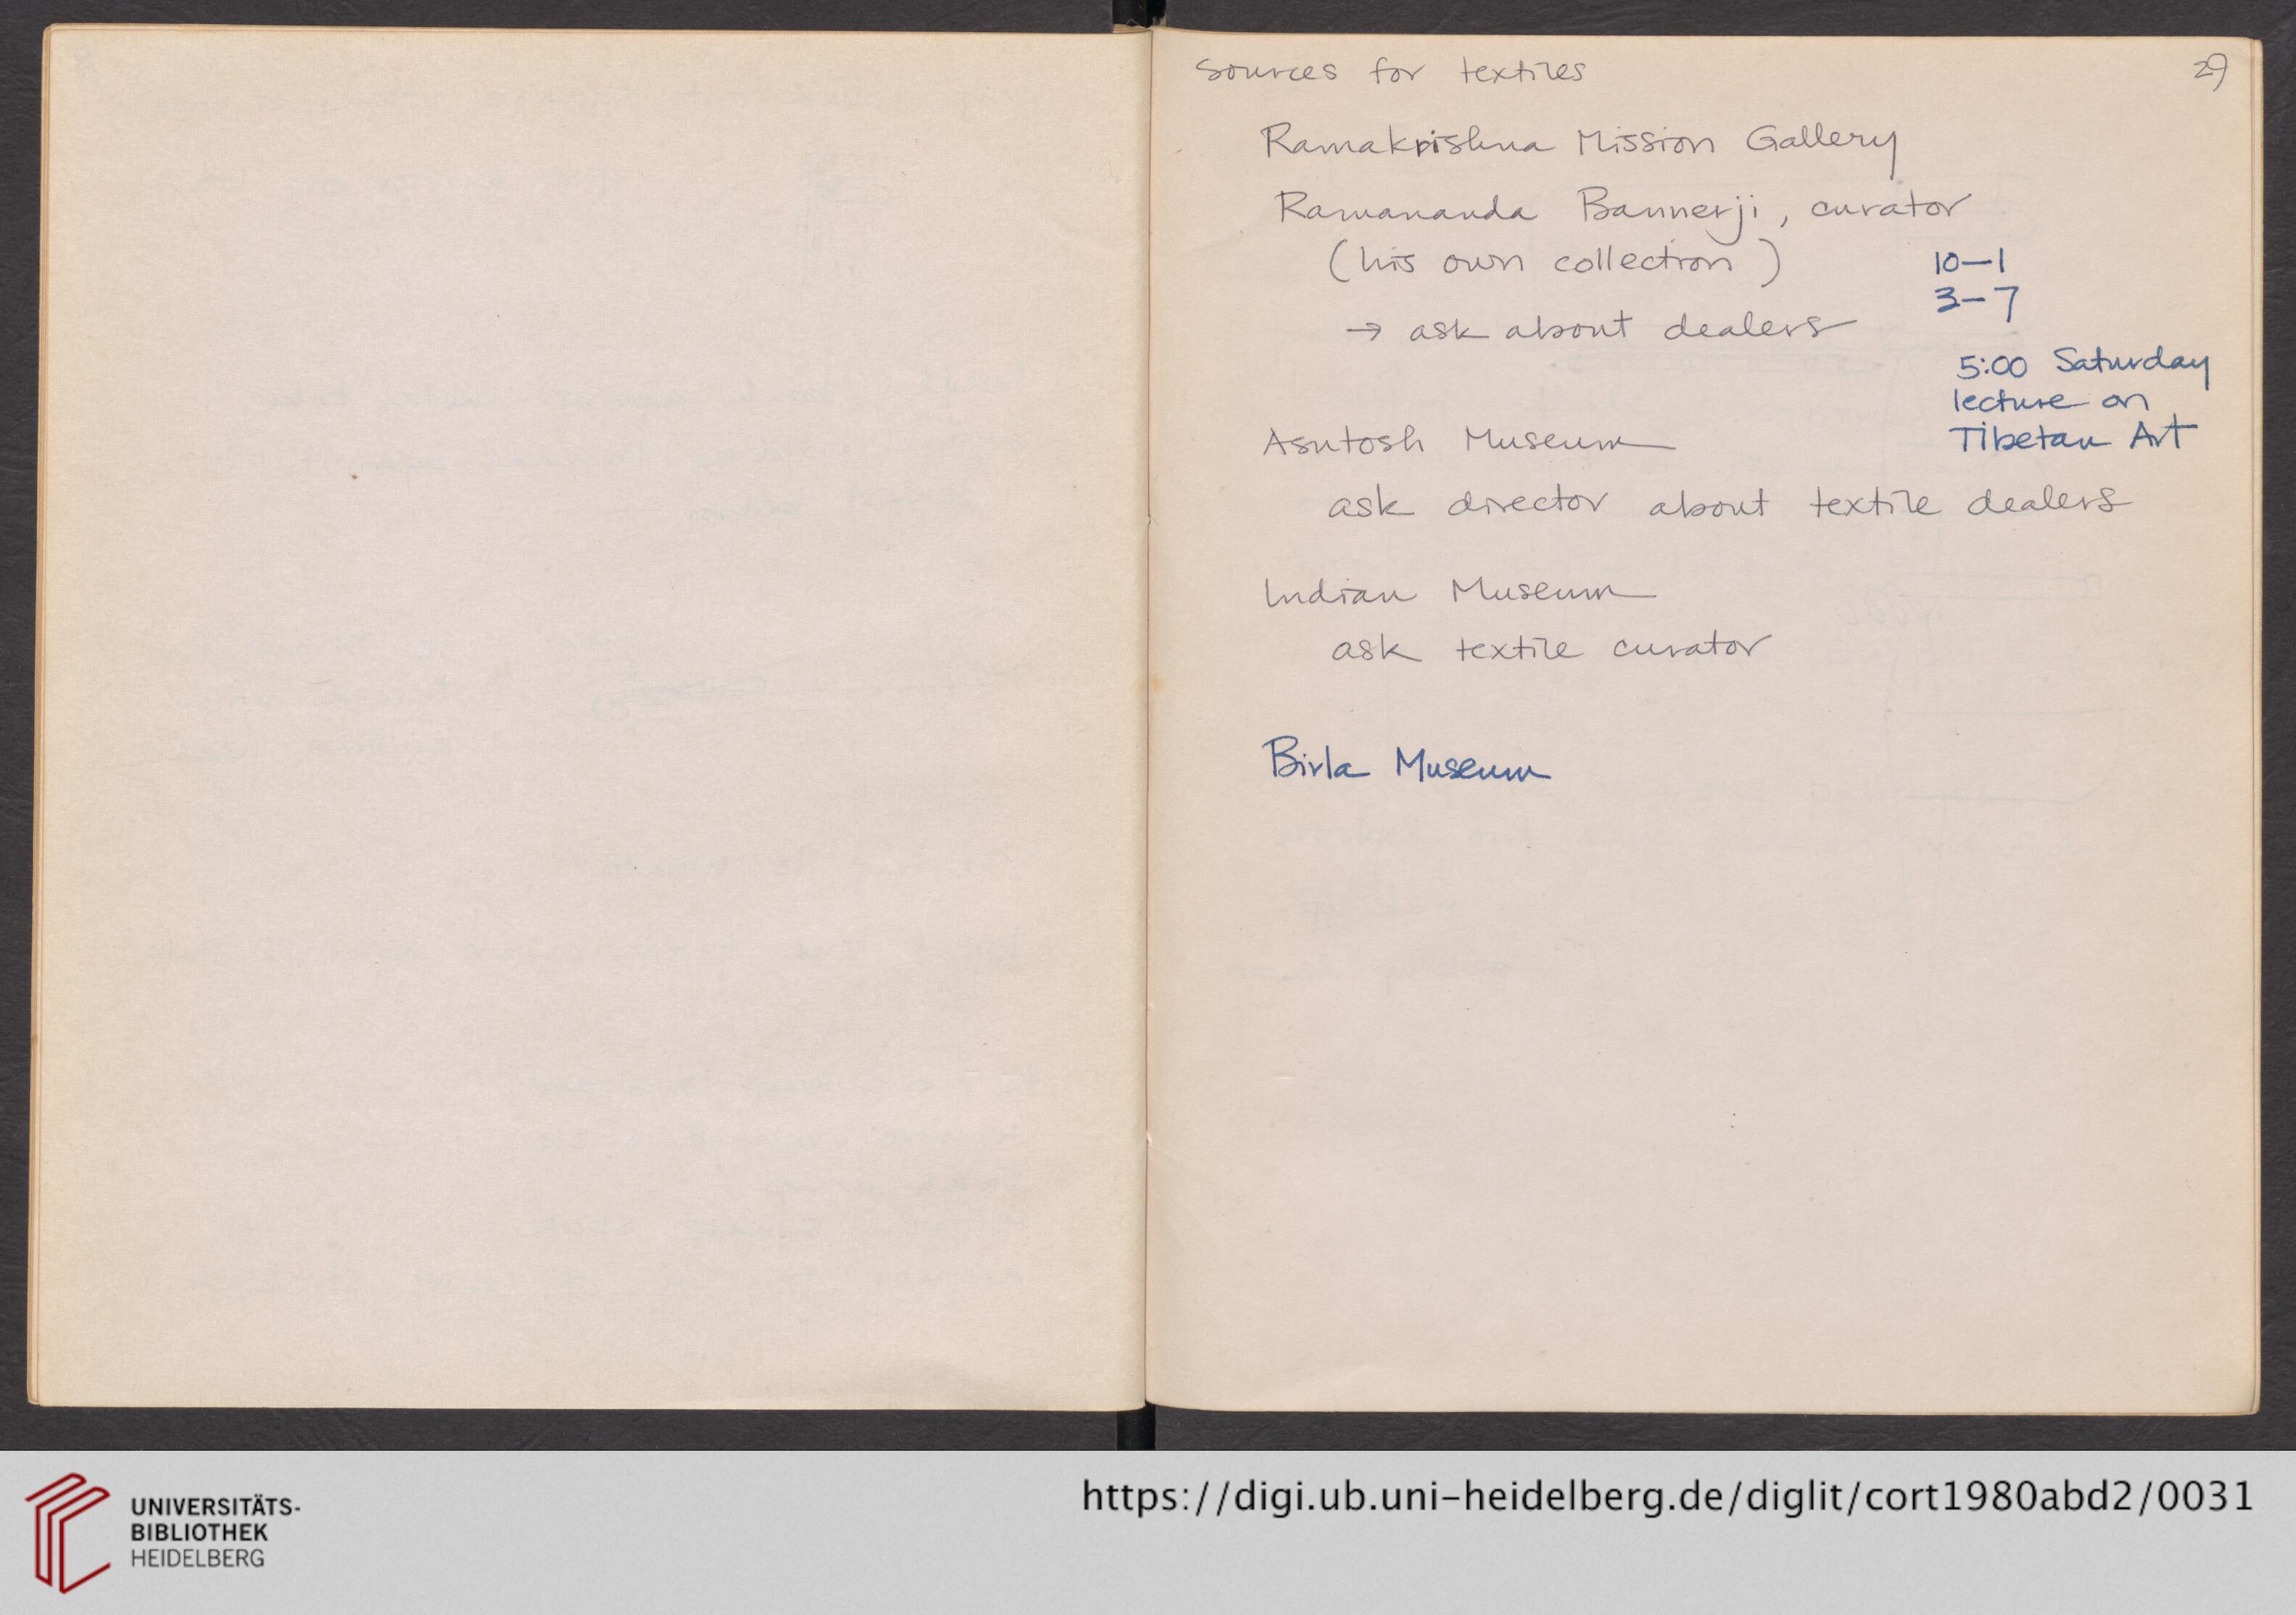 Sources for textiles
29
Ramakrishna Mission Gallery
Ramananda Bannerji, curator
(his own collection)
10—1
3—7
→ ask about dealers
5:00 Saturday
lecture on
Tibetan Art
Asutosh Museum
ask director about textile dealers
Indian Museum
ask textile curator
Birla Museum
UNIVERSITÄTS-
BIBLIOTHEK
HEIDELBERG
https://digi.ub.uni-heidelberg.de/diglit/cort1980abd2/0031